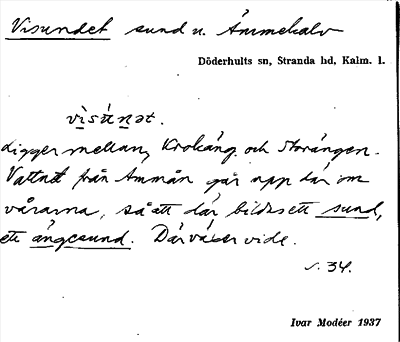 Visundet sund n. Ämmekalv
Döderhults sn, Stranda hd, Kalm. l.
visúnət.
Ligger mellan Krokäng och Storängen.
Vattnet från Ammån går upp där om
vårarna, så att där bildas ett sund,
ett ängesund. Där växer vide.
s. 34.
Ivar Modéer 1937